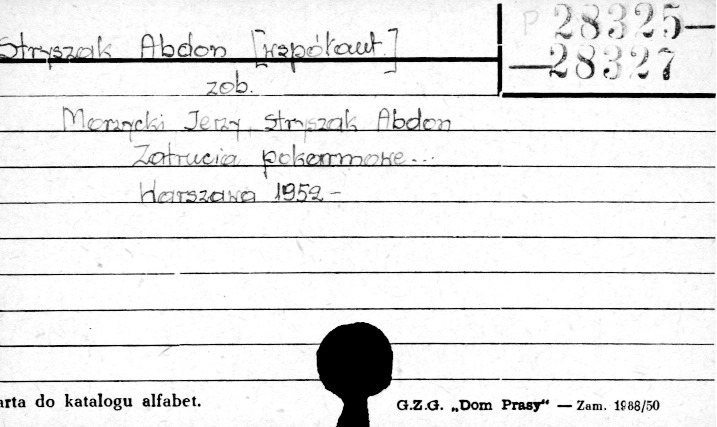 P 28325—
Stryszak Abdon [współaut.]
—28327
zob.
Morzycki Jerzy, Stryszak Abdon
Zatrucia pokarmowe...
Warszawa 1952 -
arta do katalogu alfabet.
G.Z.G. „Dom Prasy" — Zam. 1988/50